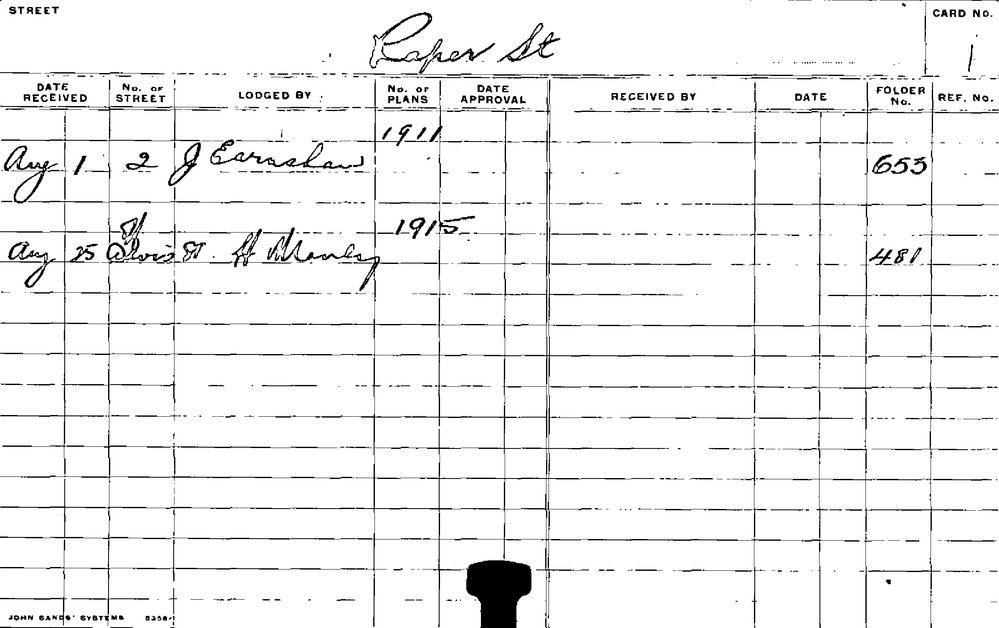 STREET
Raper St
CARD No.
1
DATE RECEIVED No. OF STREET LODGED BY No. OF PLANS DATE APPROVAL RECEIVED BY DATE FOLDER No. REF. No.
1911
Aug 1 2 J Earnshaw 653
1915
Aug 25 St. H Manley 481
JOHN SANDS' SYSTEMS